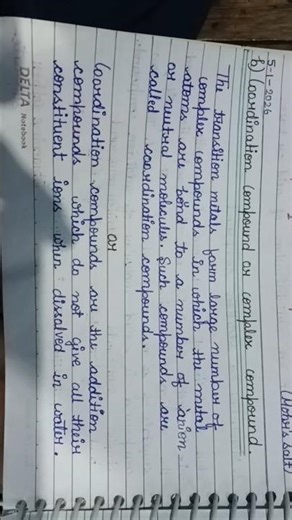 (Mohr's salt)
5-1-2026
b) Coordination compound or complex compound
The transition metals form large number of
complex compounds in which the metal
atoms are bond to a number of anion
or neutral molecules. Such compounds are
called coordination compounds.
or
Coordination compounds are the addition
compounds which do not give all their
constituent ions when dissolved in water.
DELTA Notebook